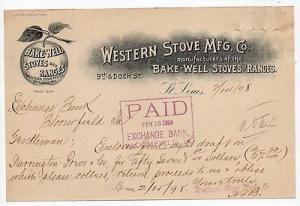 BAKE-WELL
STOVES AND
RANGES
WESTERN STOVE MFG. CO.
manufacturers of the
9TH & DOCK ST.
BAKE-WELL STOVES & RANGES.
TRADE MARK.
St. Louis, 98
Exchange Bank
PAID
FEB 16 1898
EXCHANGE BANK,
Gentlemen: Enclosed find draft on
Harrington Bros & Co for fifty seven 00 Dollars
which please collect, return proceeds to & oblige
Due 2/15/98 Yours truly